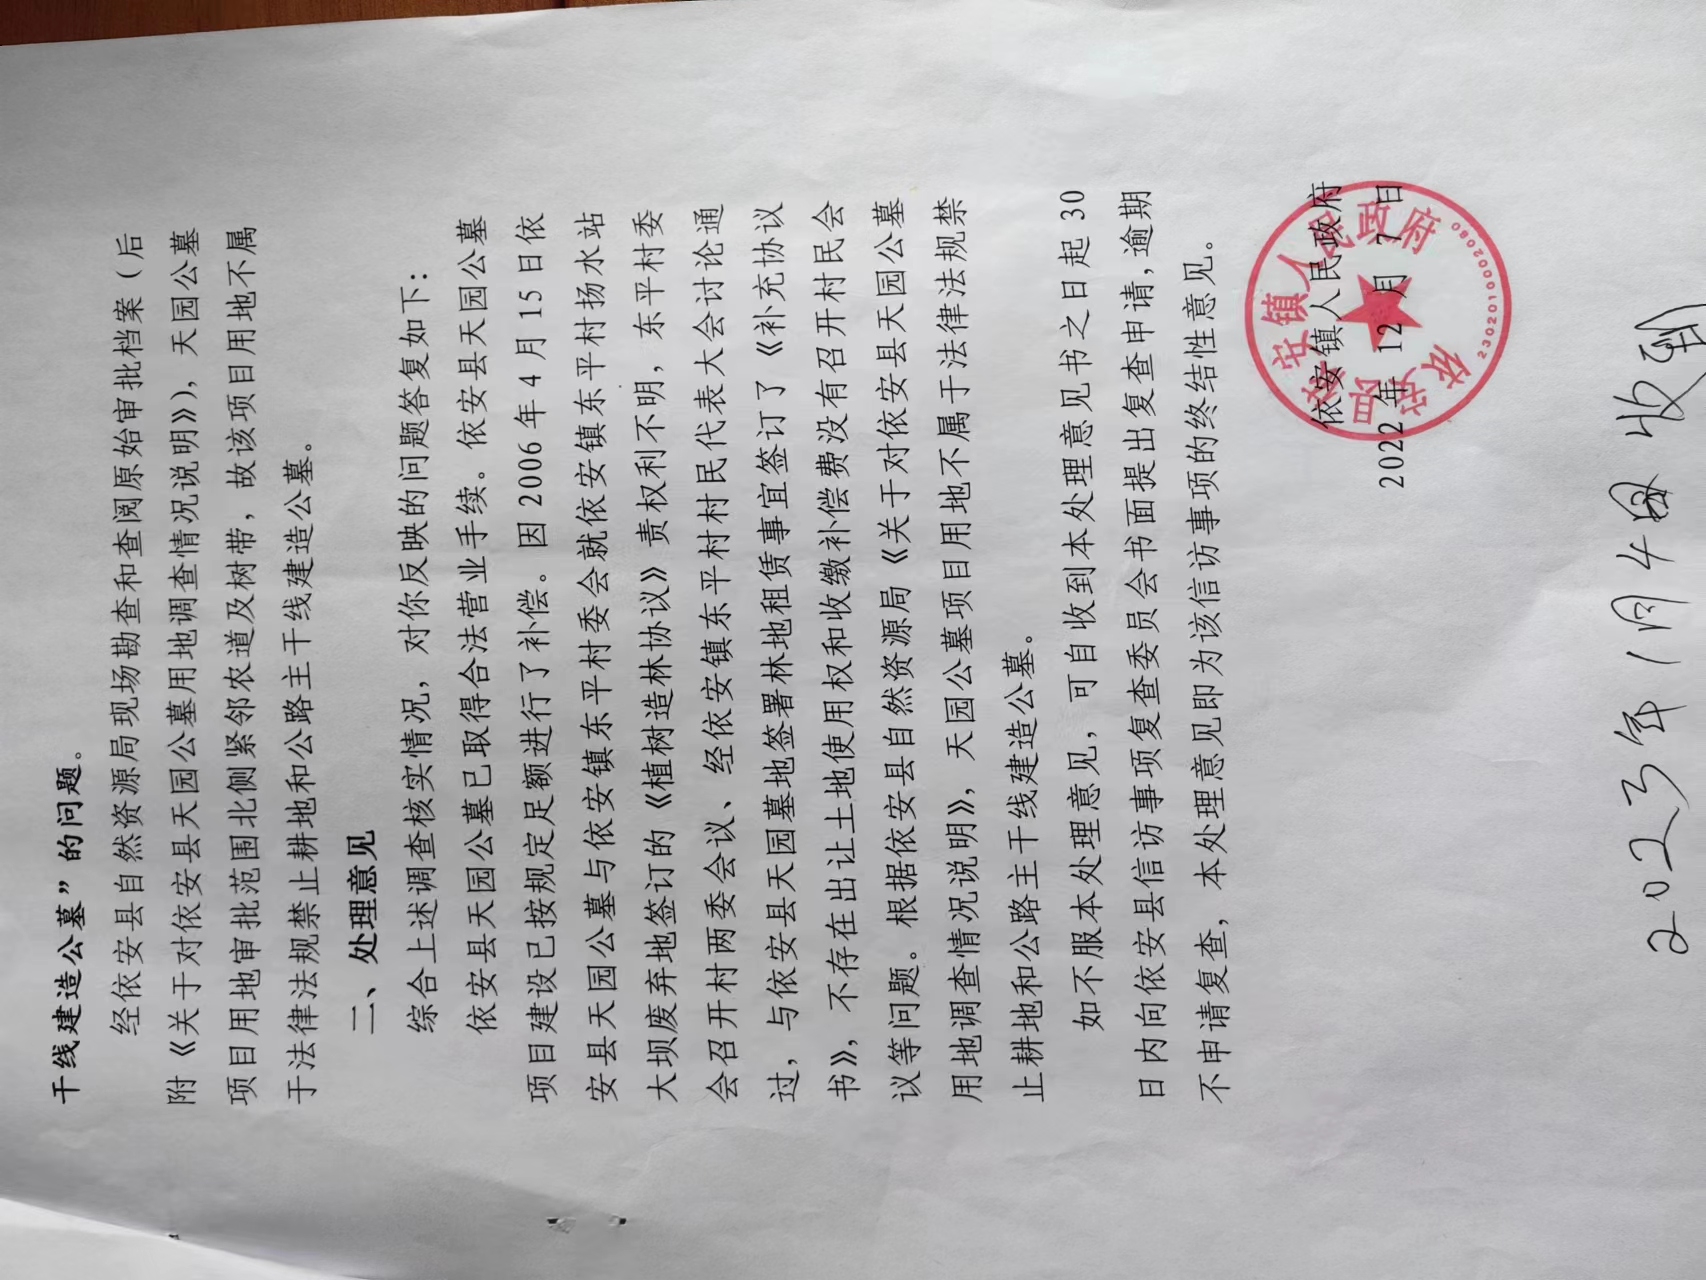 干线建造公墓”的问题。
经依安县自然资源局现场勘查和查阅原始审批档案（后
附《关于对依安县天园公墓用地调查情况说明》），天园公墓
项目用地审批范围北侧紧邻农道及树带，故该项目用地不属
于法律法规禁止耕地和公路主干线建造公墓。
二、处理意见
综合上述调查核实情况，对你反映的问题答复如下：
依安县天园公墓已取得合法营业手续。依安县天园公墓
项目建设已按规定足额进行了补偿。因2006年4月15日依
安县天园公墓与依安镇东平村委会就依安镇东平村扬水站
大坝废弃地签订的《植树造林协议》责权利不明，东平村委
会召开村两委会议、经依安镇东平村村民代表大会讨论通
过，与依安县天园墓地签署林地租赁事宜签订了《补充协议
书》，不存在出让土地使用权和收缴补偿费没有召开村民会
议等问题。根据依安县自然资源局《关于对依安县天园公墓
用地调查情况说明》，天园公墓项目用地不属于法律法规禁
止耕地和公路主干线建造公墓。
如不服本处理意见，可自收到本处理意见书之日起30
日内向依安县信访事项复查委员会书面提出复查申请，逾期
不申请复查，本处理意见即为该信访事项的终结性意见。
依安镇人民政府
2022年12月7日
依安县依安镇人民政府
2302010002080
2023年1月4日收到